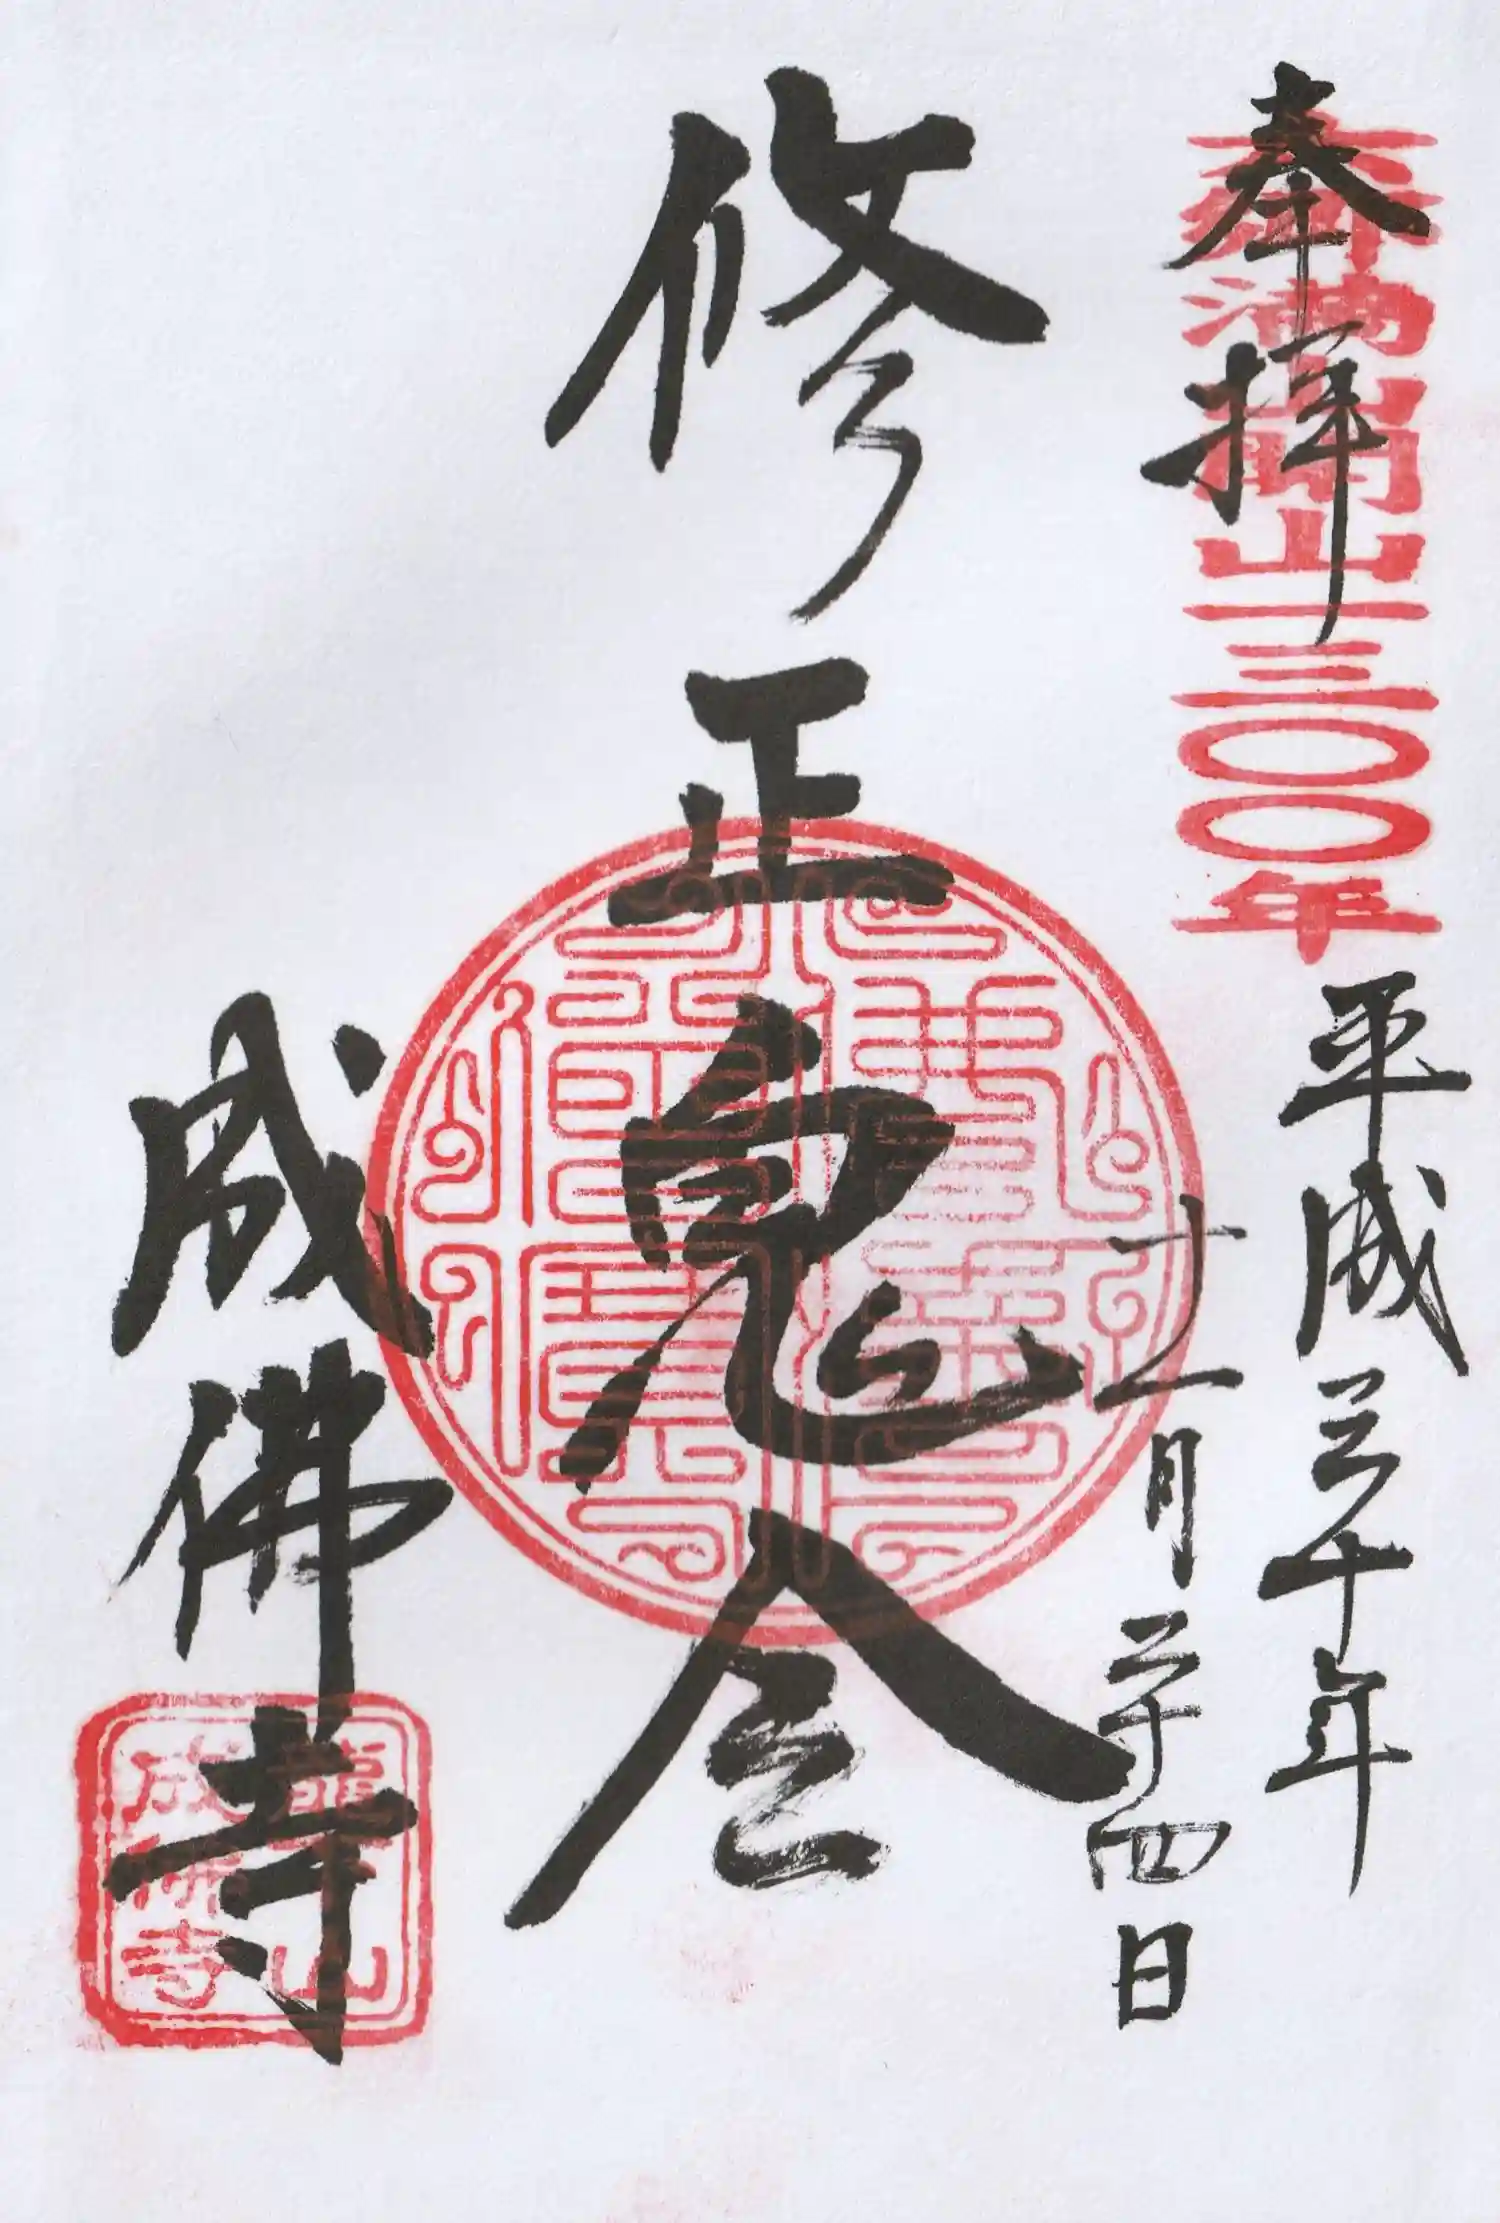 奉拝
六郷満山開山一三〇〇年
平成三十年
十一月二十四日
修正鬼会
成佛寺
龍 山
成佛寺